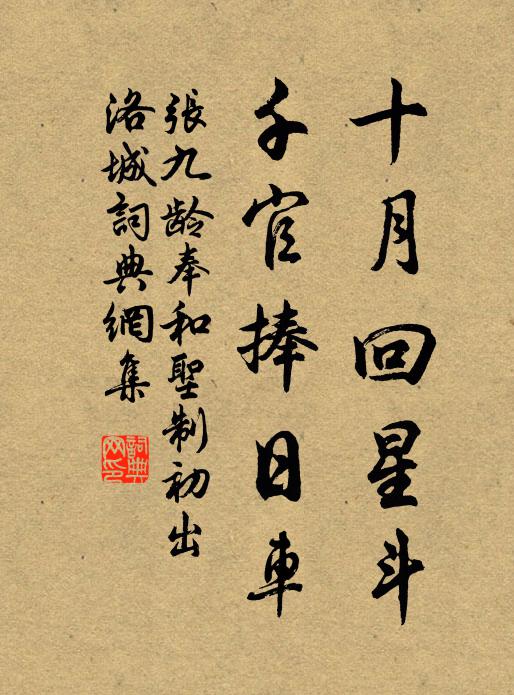 十月回星斗
千官捧日車
張九龄奉和聖制初出
洛城詞典網集
詞典网印